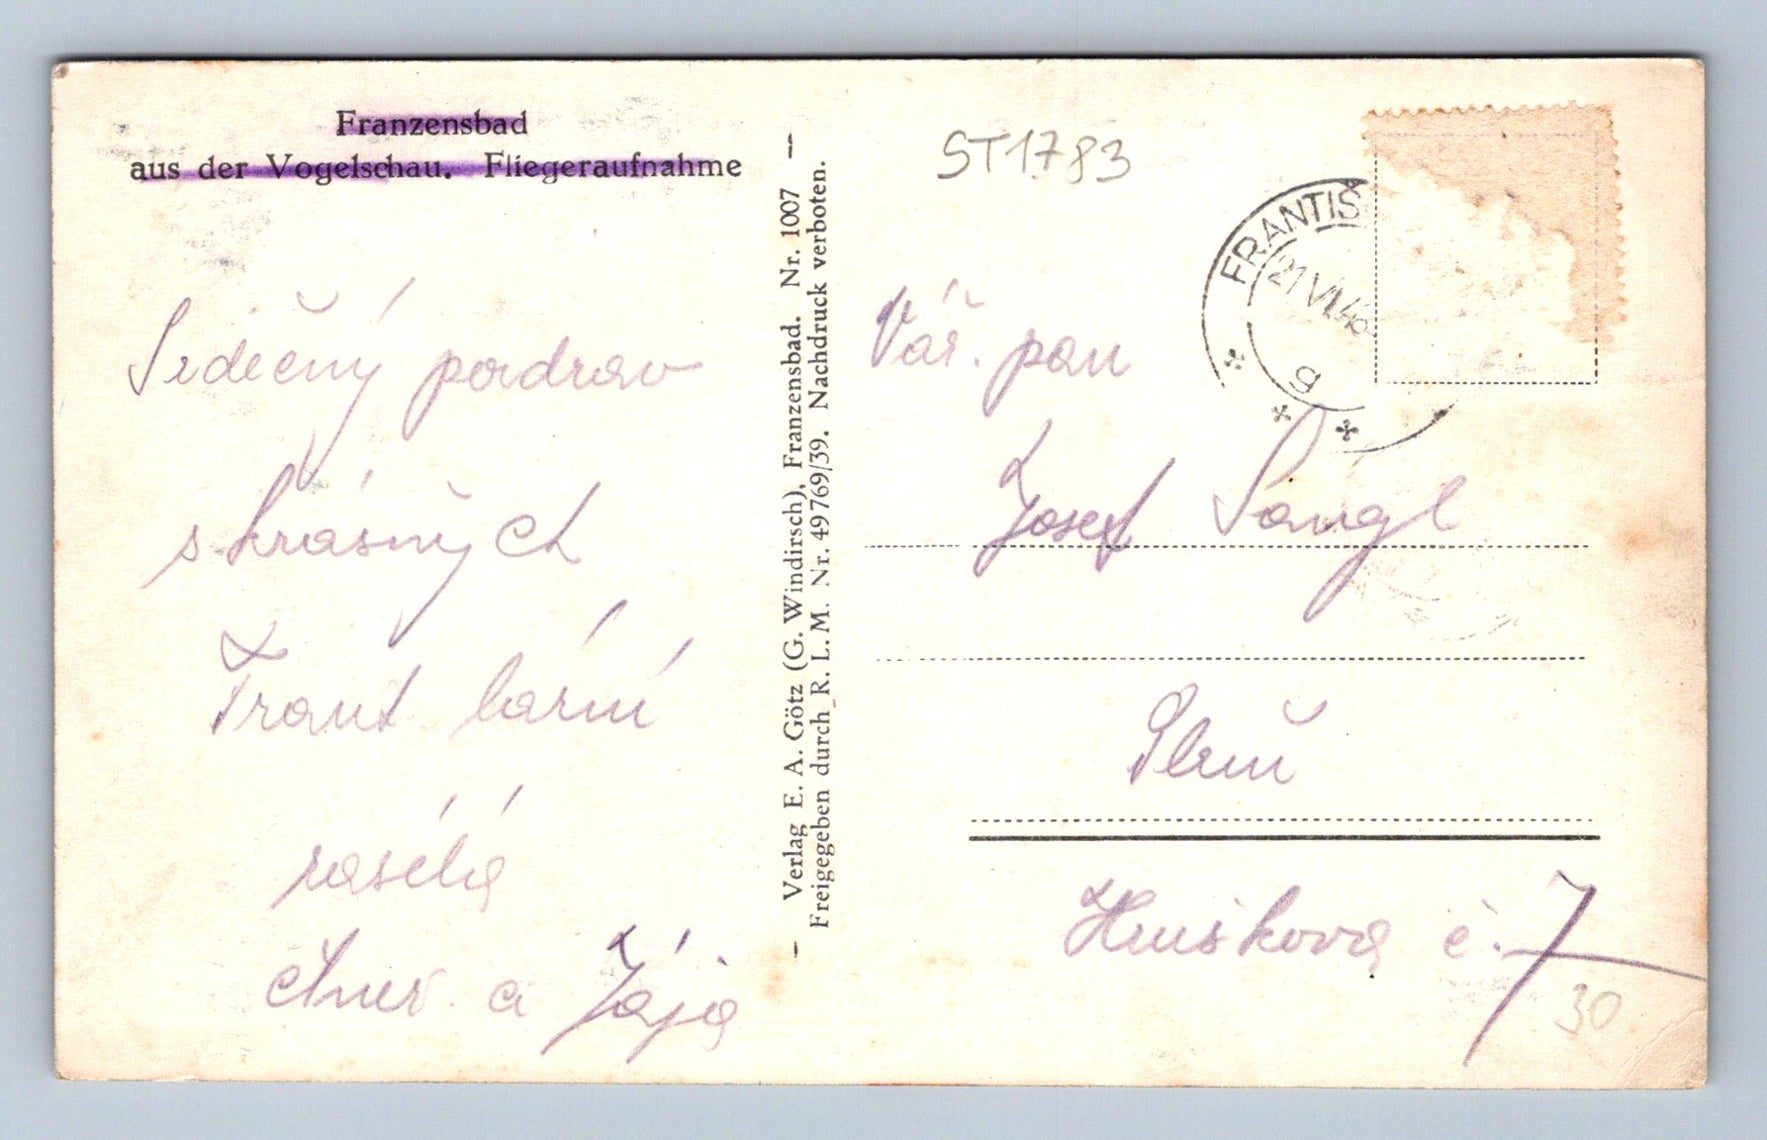 Franzensbad
aus der Vogelschau. Fliegeraufnahme
Srdečný pozdrav
s krásných
Frant lázní
zasélá
a Jája
— Verlag E. A. Götz (G. Windirsch), Franzensbad. Nr. 1007 —
Freigegeben durch R. L. M. Nr. 49769/39. Nachdruck verboten.
ST1783
FRANTIŠ
21 VI 46
g
Váž. pan
Josef
Plzeň
Husškova č. 7
30